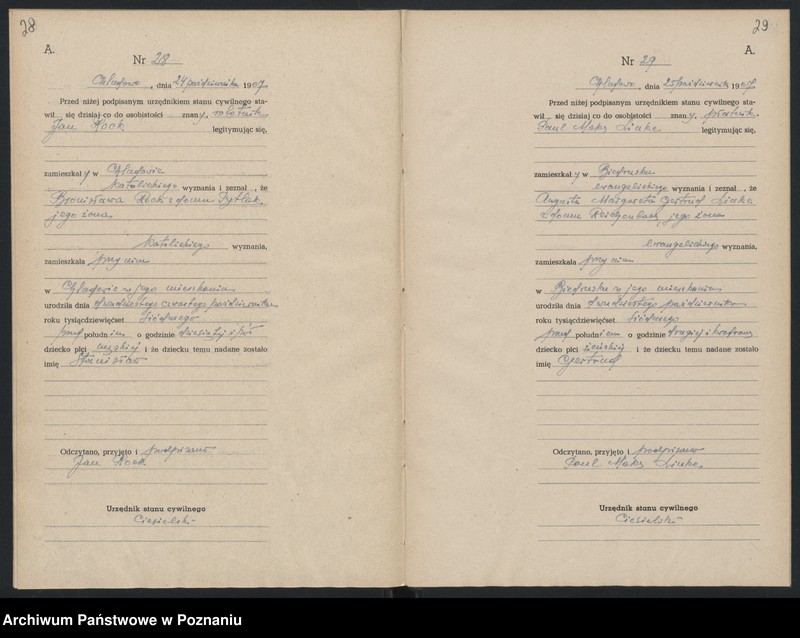 28
A.
Nr 28
, dnia 24 października 1907
Przed niżej podpisanym urzędnikiem stanu cywilnego sta-
wił się dzisiaj co do osobistości znany, robotnik
Jan Kock legitymując się,
zamieszkały w
katolickiego wyznania i zeznał, że
Bronisława Kock z domu
jego żona
katolickiego wyznania,
zamieszkała przy nim
w w jego mieszkaniu
urodziła dnia dwudziestego czwartego października
roku tysiącdziewięćset siódmego
przed południem o godzinie dziesiątej i pół
dziecko płci męskiej i że dziecku temu nadane zostało
imię Stanisław
Odczytano, przyjęto i podpisano
Jan Kock
Urzędnik stanu cywilnego
Ciesielski
29
A.
Nr 29
, dnia 25 października 1907
Przed niżej podpisanym urzędnikiem stanu cywilnego sta-
wił się dzisiaj co do osobistości znany,
Paul Maks Linke legitymując się,
zamieszkały w Biedrusku
ewangelickiego wyznania i zeznał, że
Augusta Margareta Gertrud Linke
z domu jego żona
ewangelickiego wyznania,
zamieszkała przy nim
w Biedrusku w jego mieszkaniu
urodziła dnia dwudziestego października
roku tysiącdziewięćset siódmego
przed południem o godzinie drugiej i kwadrans
dziecko płci żeńskiej i że dziecku temu nadane zostało
imię Gertrud
Odczytano, przyjęto i podpisano
Paul Maks Linke
Urzędnik stanu cywilnego
Ciesielski
Archiwum Państwowe w Poznaniu